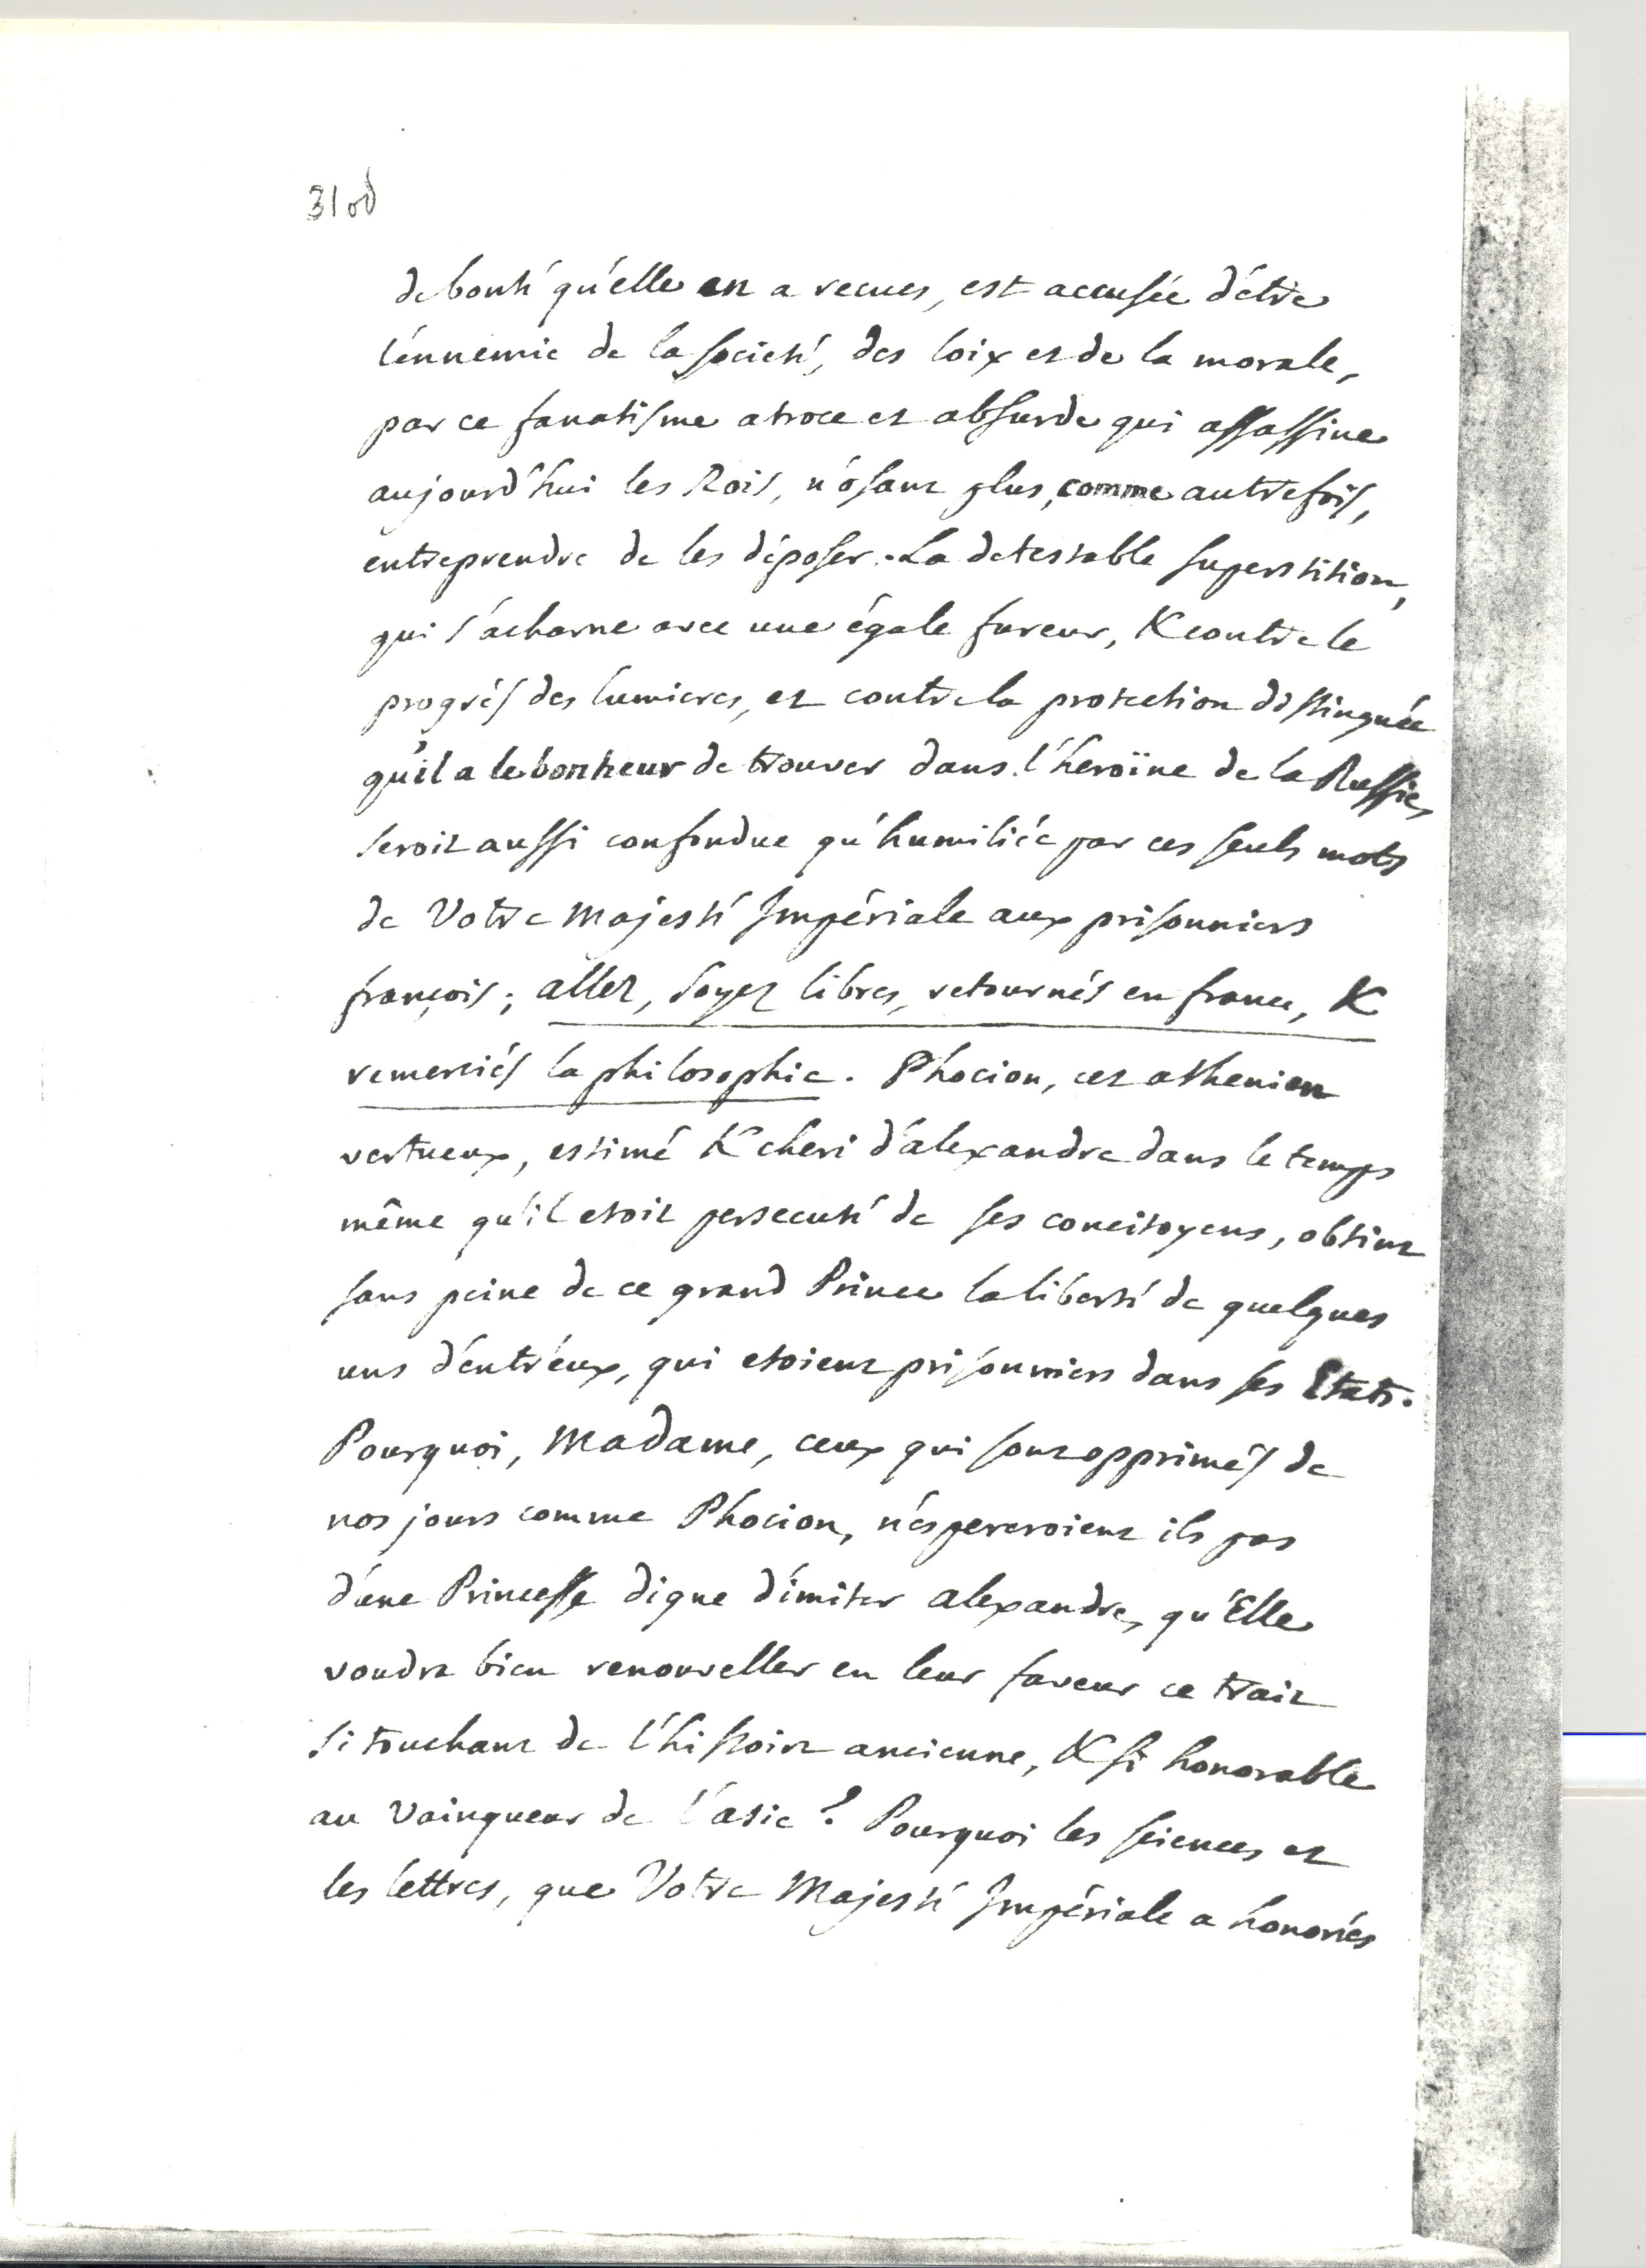 31 od
de bonté qu'elle en a recues, est accusée d'étre
l'énnemie de la societé, des loix et de la morale,
par ce fanatisme atroce et absurde qui assassine
aujourd'hui les Rois, n'ósant plus, comme autrefois,
entreprendre de les déposer. La detestable superstition,
qui s'acharne avec une égale fureur, & contre le
progrés des lumieres, et contre la protection distinguée
qu'il a le bonheur de trouver dans l'héroïne de la Russie,
seroit aussi confondue qu'humiliée par ces seuls mots
de Votre Majesté Impériale aux prisonniers
françois; allez, soyez libres, retournés en france, &
remerciés la philosophie. Phocion, cet athenien
vertueux, estimé & cheri d'alexandre dans le temps
même qu'il etoit persecuté de ses concitoyens, obtint
sans peine de ce grand Prince la liberté de quelques
uns d'entr'eux, qui etoient prisonniers dans ses Etats.
Pourquoi, Madame, ceux qui sont opprimés de
nos jours comme Phocion, n'espereroient ils pas
d'une Princesse digne d'imiter alexandre, qu'Elle
voudra bien renouveller en leur faveur ce trait
si touchant de l'histoire ancienne, & si honorable
au Vainqueur de l'asie? Pourquoi les sciences et
les lettres, que Votre Majesté Impériale a honorées